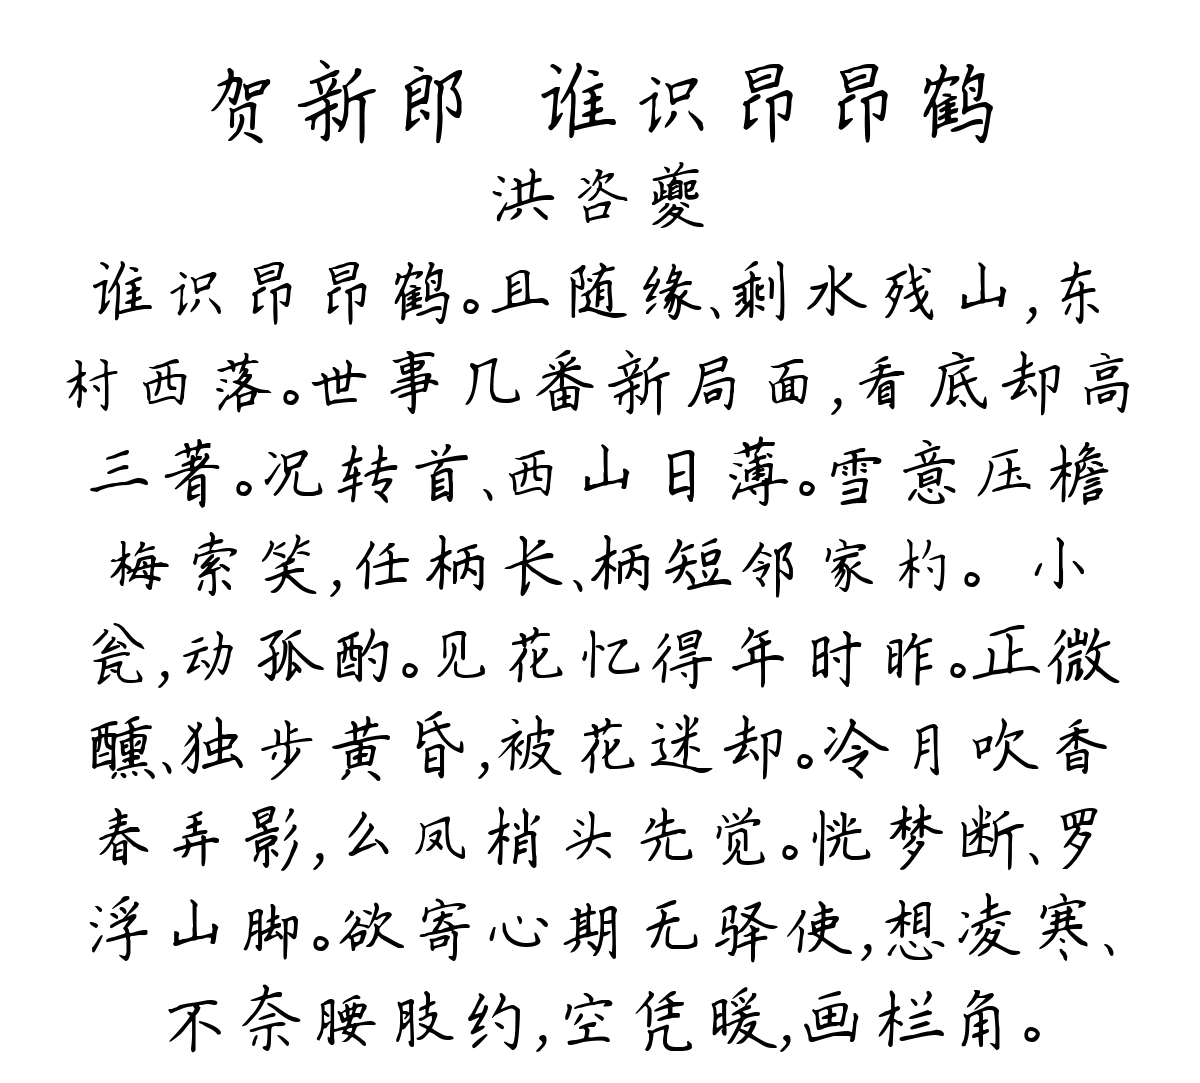 贺新郎 谁识昂昂鹤
洪咨夔
谁识昂昂鹤。且随缘、剩水残山,东
村西落。世事几番新局面,看底却高
三著。况转首、西山日薄。雪意压檐
梅索笑,任柄长、柄短邻家杓。 小
瓮,动孤酌。见花忆得年时昨。正微
醺、独步黄昏,被花迷却。冷月吹香
春弄影,么凤梢头先觉。恍梦断、罗
浮山脚。欲寄心期无驿使,想凌寒、
不奈腰肢约,空凭暖,画栏角。